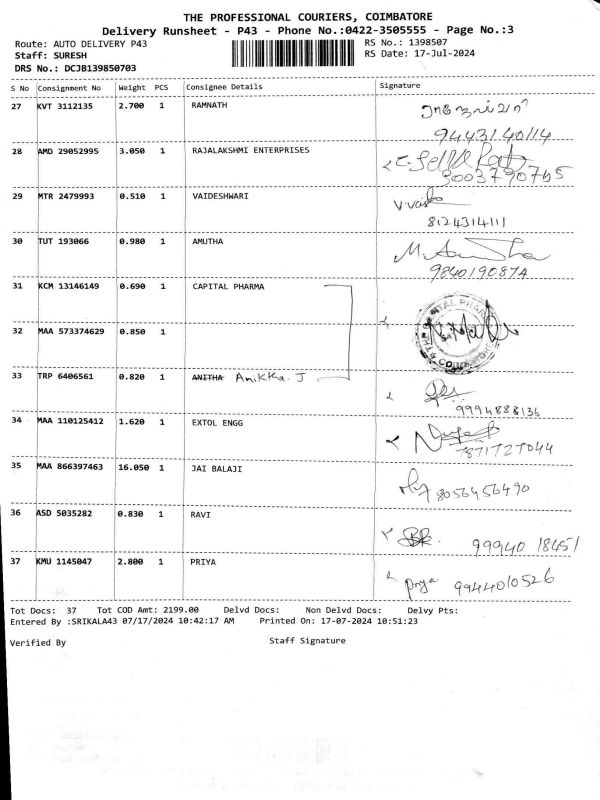 THE PROFESSIONAL COURIERS, COIMBATORE
Delivery Runsheet - P43 - Phone No.:0422-3505555 - Page No.:3
Route: AUTO DELIVERY P43
RS No.: 1398507
Staff: SURESH
RS Date: 17-Jul-2024
DRS No.: DCJB139850703
S No Consignment No Weight PCS Consignee Details Signature
27 KVT 3112135 2.700 1 RAMNATH
9443140114
28 AMD 29052995 3.050 1 RAJALAKSHMI ENTERPRISES
29 MTR 2479993 0.510 1 VAIDESHWARI
8124314111
30 TUT 193066 0.980 1 AMUTHA
9840190874
31 KCM 13146149 0.690 1 CAPITAL PHARMA
32 MAA 573374629 0.850 1
33 TRP 6406561 0.820 1 ANITHA Anikka. J
9994888136
34 MAA 110125412 1.620 1 EXTOL ENGG
7871727044
35 MAA 866397463 16.050 1 JAI BALAJI
8056456490
36 ASD 5035282 0.830 1 RAVI
99940 18451
37 KMU 1145047 2.800 1 PRIYA
Priya 9944010526
Tot Docs: 37 Tot COD Amt: 2199.00 Delvd Docs: Non Delvd Docs: Delvy Pts:
Entered By :SRIKALA43 07/17/2024 10:42:17 AM Printed On: 17-07-2024 10:51:23
Verified By Staff Signature